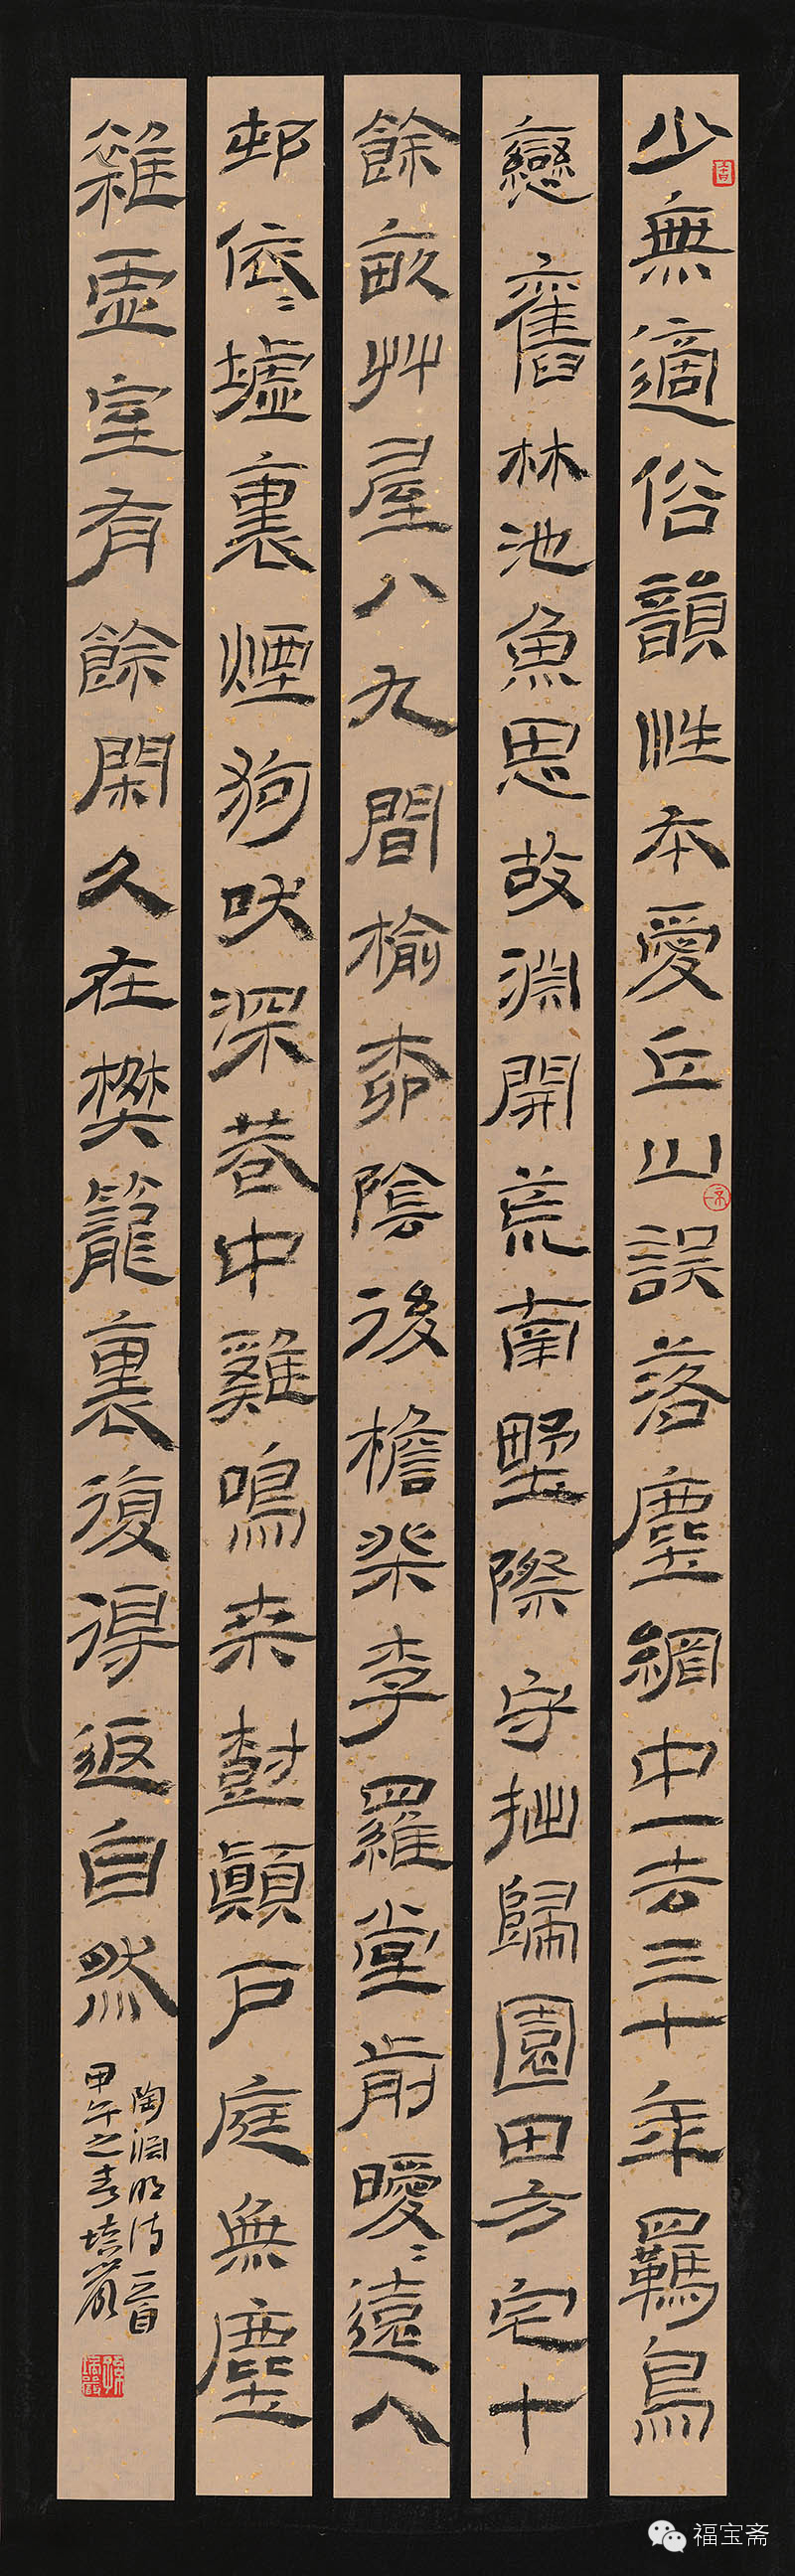 少無適俗韻性本愛丘山誤落塵網中一去三十年羈鳥
戀舊林池魚思故淵開荒南墅際守拙歸園田方宅十
餘畝艸屋八九間榆桺陰後檐桃李羅堂前曖〻遠人
邨依〻墟裏煙狗吠深巷中雞鳴桑樹顛戶庭無塵
雜虛室有餘閑久在樊籠裏復得返自然
陶淵明詩一首
甲午之春培嚴
福宝斋